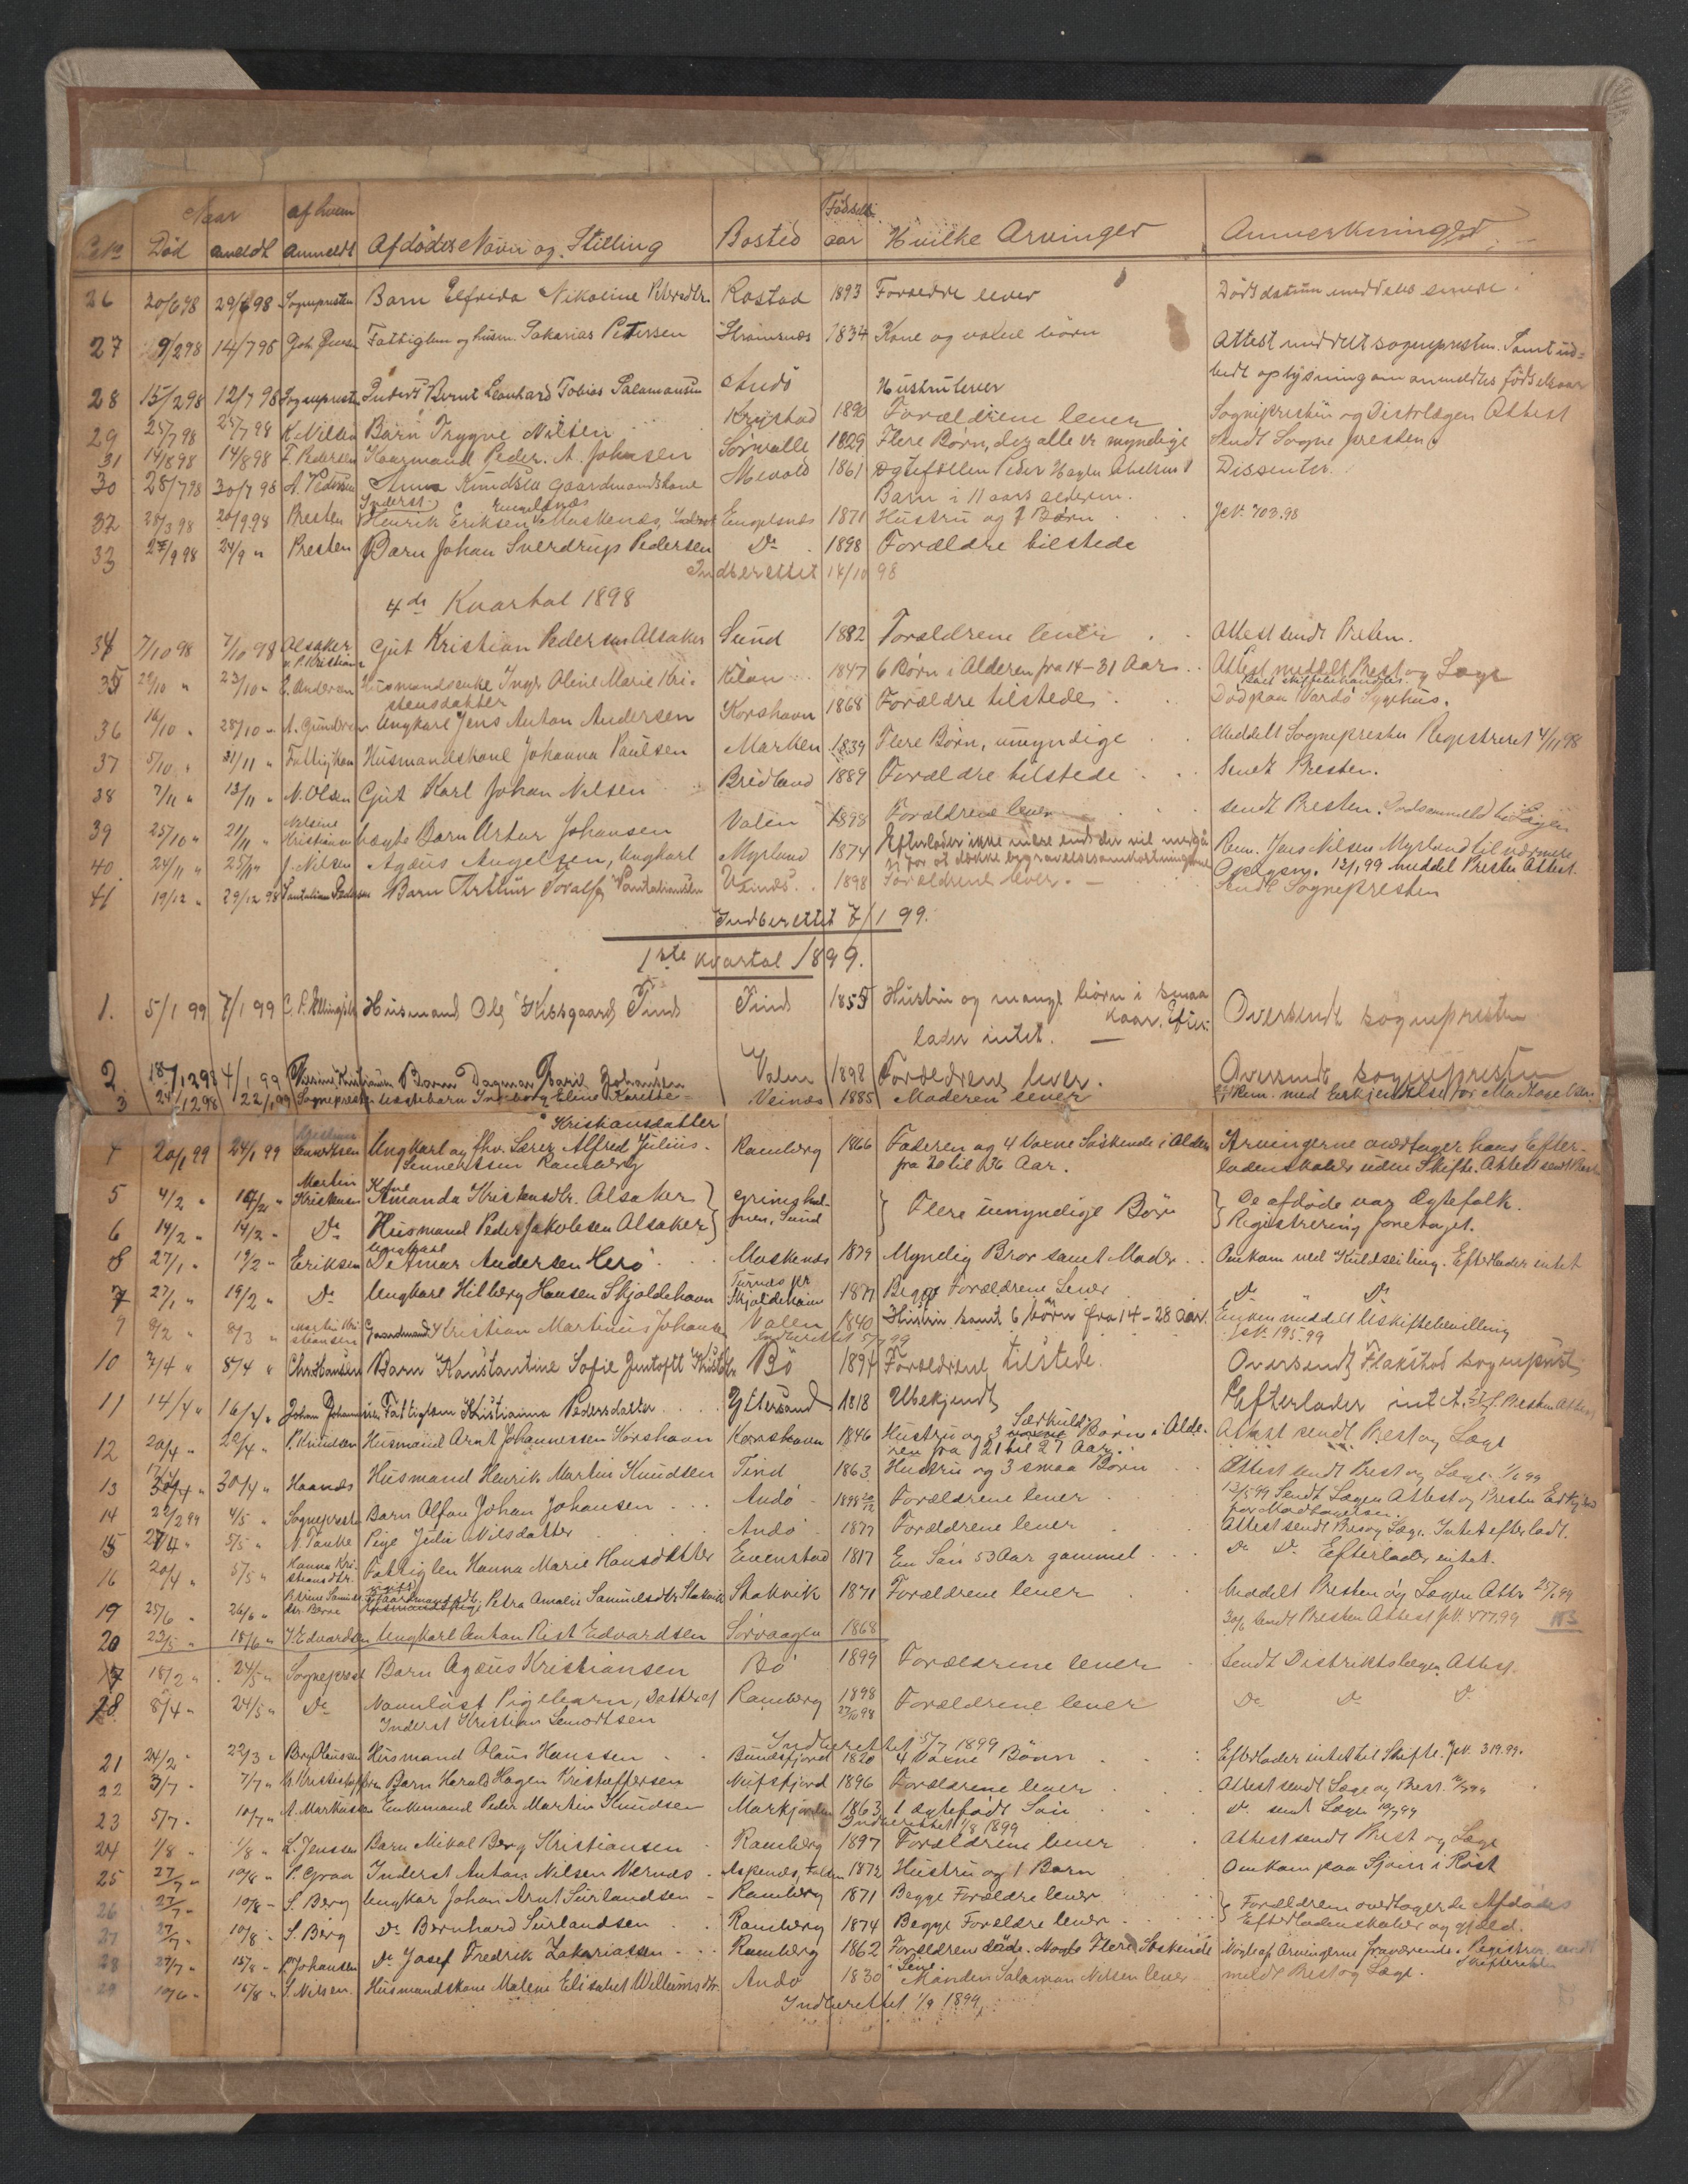 Naar af hvem Fødsels-
Død anmeldt Anmeldt Afdødes Navn og Stilling Bosted aar Hvilke Arvinger Anmerkninger
26 20/6 98 29/6 98 Sognepresten Barn Elfrida Nikoline Pedersdtr. Rostad 1893 Forældre lever Dødsdatum meddeles senere.
27 9/2 98 14/7 98 Joh. Fattiglem og husm. Sakarias Petersen Strømsnes 1834 Kone og voksne børn Attest meddelt sognepresten. Samt ud-
bedt oplysning om anmeldtes fødselsaar
28 15/2 98 12/7 98 Sognepresten Inderst Bernt Leonhard Tobias Salamonsen Andø Hustru lever Sognepresten og Distrlægen Attest
29 25/7 98 25/7 98 K. Nilsen Barn Trygve Nilsen Krystad 1890 Forældrene lever Sendt Sognepresten
31 14/8 98 14/8 98 P. Pedersen Kaarmand Peder. A. Johnsen Sørvalle 1829 Flere Børn, der alle er myndige
30 28/7 98 30/7 98 A. Pedersen Anna Knudsen Gaardmandskone Mevold 1861 Ægtefællen Peder Hagen Abelsen 1 Dissenter.
Barn i 11 aars alderen.
Inderst Engelsnæs
32 28/3 98 20/9 98 Presten Henrik Eriksen Moskenæs, Inderst Engelsnæs 1871 Hustru og 7 Børn JN. 703.98
33 27/9 98 24/9 " Presten Barn Johan Sverdrup Pedersen Do 1898 Forældre tilstede
Indberettet 14/10 98
4de Kvartal 1898
34 7/10 98 7/10 98 Alsaker Gut Kristian Pedersen Alsaker Sund 1882 Forældrene lever Attest sendt Presten.
v. P. Kristian
35 29/10 " 23/10 " E. Andersen Husmandsenke Inger Oline Marie Kri- Kilan 1847 6 Børn i Alderen fra 14-31 Aar Attest meddelt Prest og Læge
stensdatter skiftebehandles
36 16/10 " 28/10 " A. Gundersen Ungkarl Jens Anton Andersen Korshavn 1868 Forældre tilstede Død paa Vardø Sygehus.
37 5/10 " 31/11 " Husmandskone Johanna Paulsen Marken 1839 Flere Børn, umyndige Meddelt Sognepresten Registreret 4/11 98
38 7/11 " 13/11 " N. Olsen Gut Karl Johan Nilsen Bredland 1889 Forældre tilstede Sendt Presten.
39 25/10 " 21/11 " Nilsine Kristiansen Uægte Barn Artur Johansen Valen 1898 Forældrene lever sendt Presten.
40 24/11 " 25/11 " J. Nilsen Agæus Angelsen, Ungkarl Myrland 1874 Efterlader ikke mere end der vil medgå Rem. Jens Nilsen Myrland til nærmere
for at dække begravelsesomkostningerne Opgjør. 13/1 99 Meddel Presten Attest.
41 19/12 " 29/12 98 Barn Arthur Toralf Pantaliansen Veinæs 1898 Forældrene lever. Sendt Sognepresten
Indberettet 7/1 99.
1ste Kvartal 1899.
1. 5/1 99 7/1 99 C. P. Ellingsen Husmand Ole Kissgaard Tind Tind 1855 Hustru og mange børn i smaa Oversendt sognepresten
kaar. Efter-
lader intet.
2 18/12 98 4/1 99 Barn Dagmar Johansen Valen 1898 Forældrene lever. Oversendt sognepresten
3 24/12 98 22/1 99 Sognepresten uægtebarn Ingeborg Eline Kaisæ- Veinæs 1885 Moderen lever Rem. med Erkjendelse for Modtagelsen
Kristiansdatter
4 20/1 99 24/1 99 Lennertsen Ungkarl og fhv. Lærer Alfred Julius- Ramberg 1866 Faderen og 4 voxne Søskende i Alder Arvingerne overtager hans Efter-
Lennertsen Ramberg fra 20 til 36 Aar. ladenskaber uden Skifte. Attest sendt Prest
5 4/2 " 10/2 " Martin Kristensen Kone Amanda Kristensdtr. Alsaker De afdøde var Ægtefolk.
6 14/2 " 14/2 " Do Husmand Peder Jakobsen Alsaker Sund Flere umyndige Børn Registrering foretaget.
8 27/1 " 19/2 " Eriksen Ungkarl Detmar Andersen Herø Moskenæs 1879 Myndig Bror samt Moder Omkom ved Kuldseiling. Efterlader intet
7 27/1 " 19/2 " Do Ungkarl Hilberg Hansen Skjoldehavn Turnæs pr Skjoldehavn 1877 Begge Forældrene Lever Do Do
9 9/2 " 9/3 " Martin Kristiansen Gaardmand Kristian Martinus Johansen Valen 1840 Hustru samt 6 børn fra 14-28 aar. Enken meddelt Uskiftebevilling
Indberettet 5/4 99 JN. 195.99
10 7/4 " 8/4 " Chr. Hansen Barn Konstantine Sofie Gentoftt Kristdtr Bø 1894 Forældrene tilstede. Oversendt Flakstad sogneprest
11 14/4 " 16/4 " Johan Johansen Fattiglem Kristianna Pedersdatter Yttersand 1818 Ubekjendt Efterlader intet. Presten Attest
12 20/4 " 22/4 " P. Knudsen Husmand Arnt Johannessen Korshavn Korshavn 1846 Hustru og 3 Særkuld Børn i Alde- Attest sendt Prest og Læge
ren fra 21 til 27 Aar.
13 30/4 " Haanæs Husmand Henrik Martin Knudsen Tind 1863 Hustru og 3 smaa Børn Attest sendt Prest og Læge. 1/6 99
14 22/2 99 4/5 " Sognepresten Barn Alfon Johan Johansen Andø 1898 20/12 Forældrene lever 12/5 99 Sendt Lægen Attest og Presten Erkjend
for Modtagelsen.
15 27/4 " 5/5 " N. Tanke Pige Julie Nilsdatter Andø 1877 Forældrene lever Attest sendt Pres og Læge. Intet efterladt.
16 20/4 " 5/5 " Hanna Kristiansdtr. Fattiglem Hanna Marie Hansdatter Evenstad 1817 En Søn 53 Aar gammel Do Do Efterlader intet.
19 25/6 " 26/6 " Gaardmandsdtr Petra Amalie Samuelsdtr Stakvik Stakvik 1871 Forældrene lever Meddelt Presten og Lægen Atts 25/7 99
30/6 sendt Presten Attest JN. 477.99
20 23/5 " 18/6 " J. Edvardsen Ungkarl Anton Rist Edvardsen Sørvaagen 1868
17 18/2 " 24/5 " Sogneprest Barn Agæus Kristiansen Bø 1899 Forældrene lever Sendt Distriktslægen Attest.
18 8/4 " 24/5 " Do Navnløst Pigebarn, Datter af Ramberg 1898 Forældrene lever Do Do Do
Inderst Kristian Lenordtsen 27/10 98
Indberettet 5/7 1899
21 24/2 " 22/3 " Berg Olaussen Husmand Olaus Hanssen Bundesfjord 1820 4 Voxne Børn Efterlader intet til Skifte. JN. 319.99.
22 3/7 " 7/7 " Kr. Kristoffersen Barn Harald Hagen Kristoffersen Nufsfjord 1896 Forældrene lever Attest sendt Læge og Prest. 10/7 99
23 5/7 " 10/7 " A. Markussen Enkemand Peder Martin Knudsen Markjorden 1863 1 ægtefødt Søn Do sendt Lægen 10/7 99
Indberettet 1/8 1899
24 1/8 " 1/8 " L. Jenssen Barn Mikal Berg Kristiansen Ramberg 1897 Forældrene lever Attest sendt Prest og Læge
25 27/7 " 10/8 " P. Graa Inderst Anton Nilsen Værnæs Askenæs, 1872 Hustru og 1 Barn Omkom paa Sjøen i Røst
26 27/7 " 10/8 " S. Berg Ungkar Johan Arnt Surlandsen Ramberg 1871 Begge Forældre lever Forældrene overtager de Afdødes
27 27/7 " 10/8 " S. Berg Do Bernhard Surlandsen Ramberg 1874 Begge Forældre lever Efterladenskaber og gjæld.
28 27/7 " 15/8 " Johansen Do Josef Fredrik Zakariassen Ramberg 1862 Forældrene døde. Flere Søskende Nogle af Arvingerne fraværende. Registrer. sendt
Leve. Skifteretten
29 10/6 " 15/8 " S. Nilsen Husmandskone Malene Elisabet Willumsdtr. Andø 1830 Manden Salamon Nilsen lever meldt Prest og Læge.
Indberettet 1/9 1899